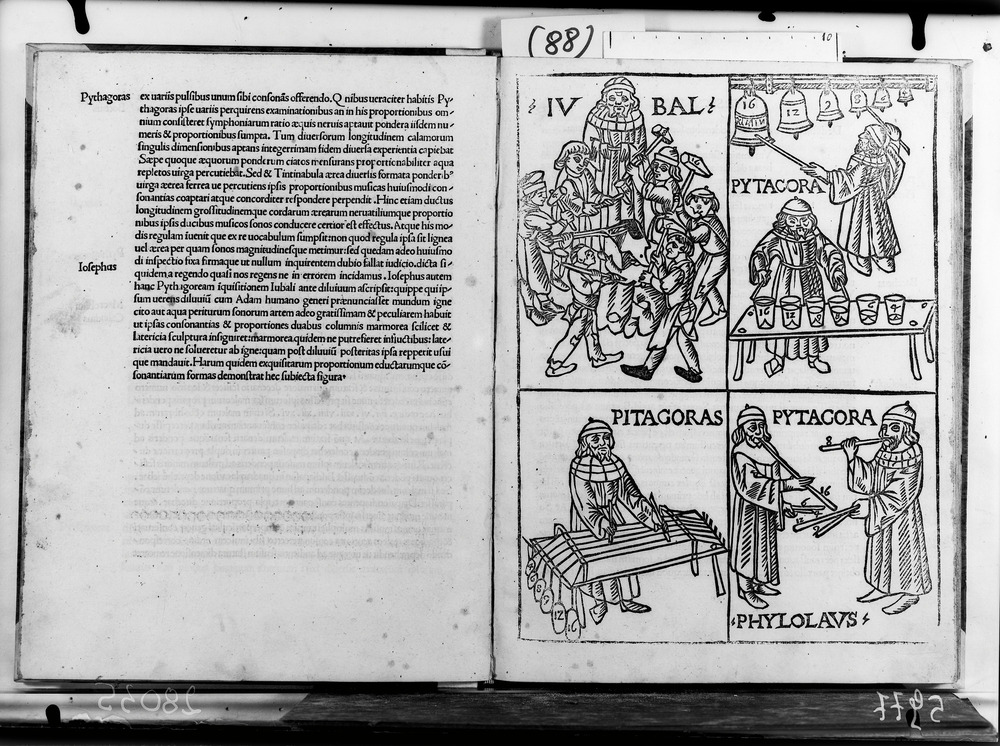 (88)
10
Pythagoras
ex uariis pulsibus unum sibi consonás offerendo. Q nibus ueraciter habitis Py-
thagoras ipse uariis perquirens examinationibus an in his proportionibus om-
nium consisteret symphoniarum ratio æquis neruis aptauit pondera iisdem nu-
meris & proportionibus sumpta. Tum diuersorum longitudinem calamorum
singulis dimensionibus aptans integerrimam fidem diuersa experientia capiebat
Sæpe quoque æquorum ponderum ciatos mensurans proportionabiliter aqua
repletos uirga percutiebat. Sed & Tintinabula ærea diuersis formata ponderibꝰ
uirga ærea ferrea ue percutiens ipsis proportionibus musicas huiusmodi con-
sonantias coaptari atque concorditer respondere perpendit. Hinc etiam ductus
longitudinem grossitudinemque cordarum ærearum neruatiliumque proportio
nibus ipsis ducibus musicos sonos conducere certior est effectus. Atque his mo-
dis regulam iuenit que ex re uocabulum sumpsit: non quod regula ipsa sit lignea
uel ærea per quam sonos magnitudinesque metimur: sed quedam adeo huiusmo
di inspectio fixa firmaque ut nullum inquirentem dubio fallat iudicio. dicta si-
quidem a regendo quasi nos regens ne in errorem incidamus. Iosephus autem
Iosephus
hanc Pythagoream iquisitionem Iubali ante diluuium ascripsit: quippe qui ip-
sum uerens diluuiũ cum Adam humano generi prænunciasset mundum igne
cito aut aqua periturum sonorum artem adeo gratissimam & peculiarem habuit
ut ipsas consonantias & proportiones duabus columnis marmorea scilicet &
latericia sculptura insigniret: marmorea quidem ne putrefieret influctibus: late-
ricia uero ne solueretur ab igne: quam post diluuiũ posteritas ipsa repperit usui
que mandauit. Harum quidem exquisitarum proportionum eductarumque cõ-
sonantiarum formas demonstrat hec subiecta figura
IV BAL
16 12 9 8 6 4
PYTAGORA
16 12 9 8 6 4
PITAGORAS
12 16
PYTAGORA
8 16
PHYLOLAVS
28035
5977